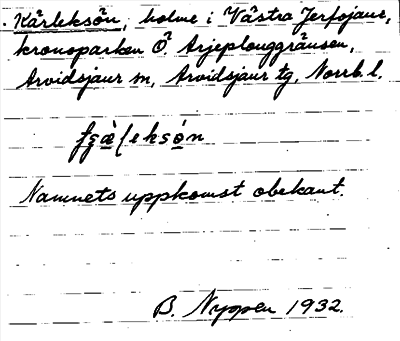 Kärleksön, holme i Västra Jerfojaur,
kronoparken Ö Arjeplouggränsen,
Arvidsjaur sn, Arvidsjaur tg, Norrb. l.
Namnets uppkomst obekant.
B. Nyppen 1932.